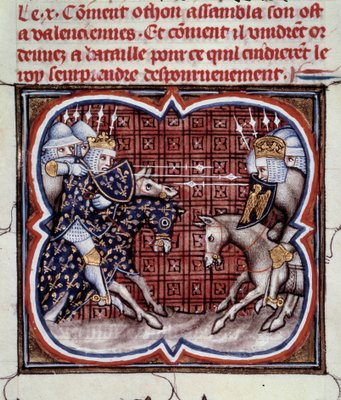 Le .x. Coment othon assambla son ost
a valenciennes. Et coment il vindrent or
denez a bataille pour ce quil cuidierent le
roy seurprendre despourueuement.